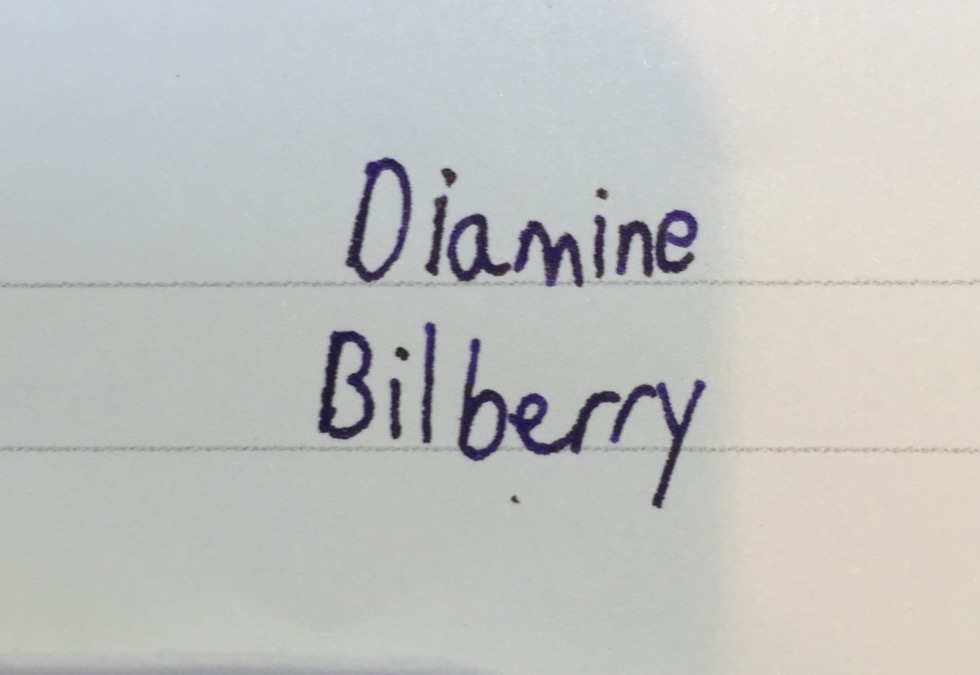 Diamine
Bilberry